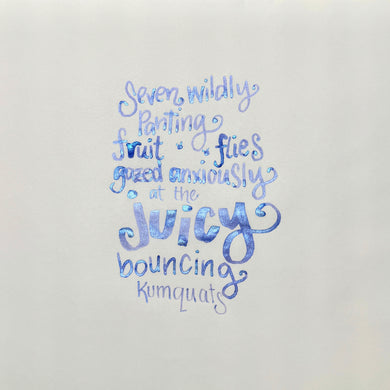 Seven wildly
Panting
fruit flies
gazed anxiously
at the
juicy
bouncing
Kumquats